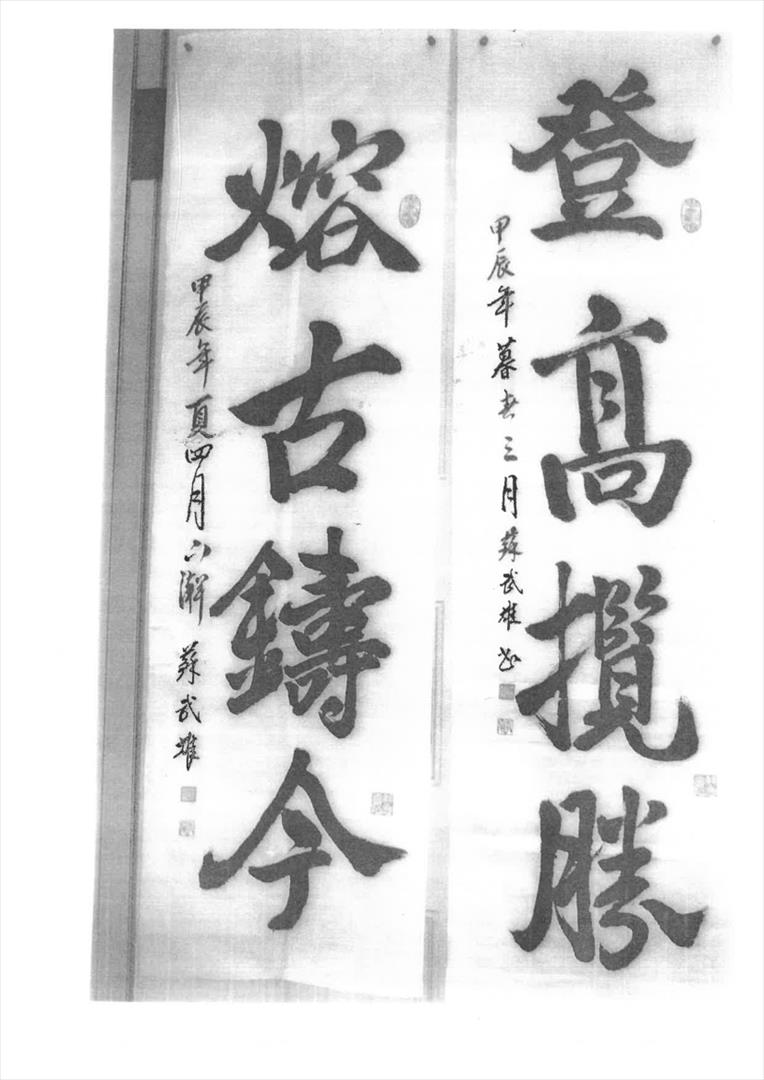 登高攬勝
甲辰年暮春三月蘇武雄書
熔古鑄今
甲辰年夏四月
蘇武雄